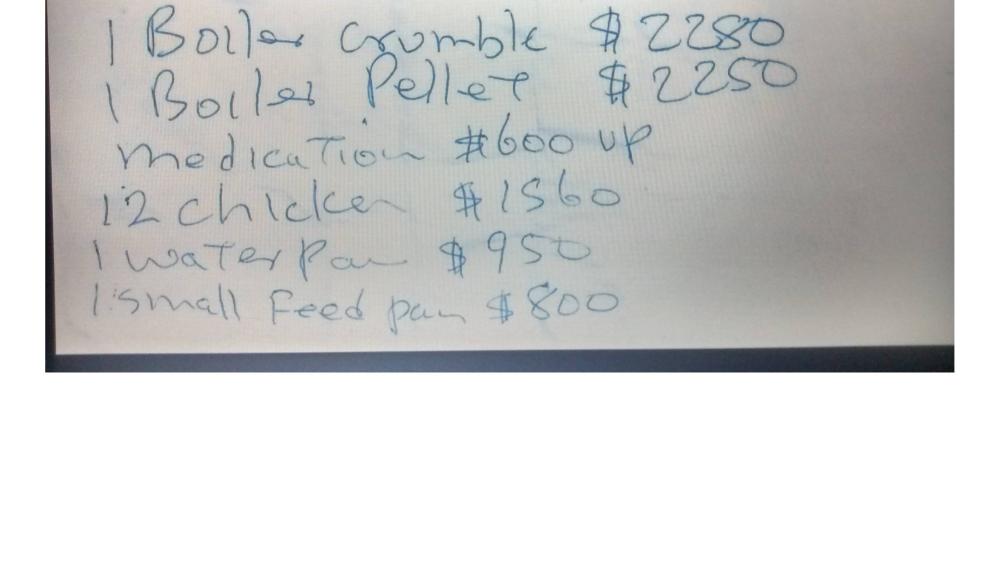 1 Boiler Crumble $2280
1 Boiler Pellet $2250
medication $600 up
12 chicken $1560
1 water pan $950
1 small Feed pan $800